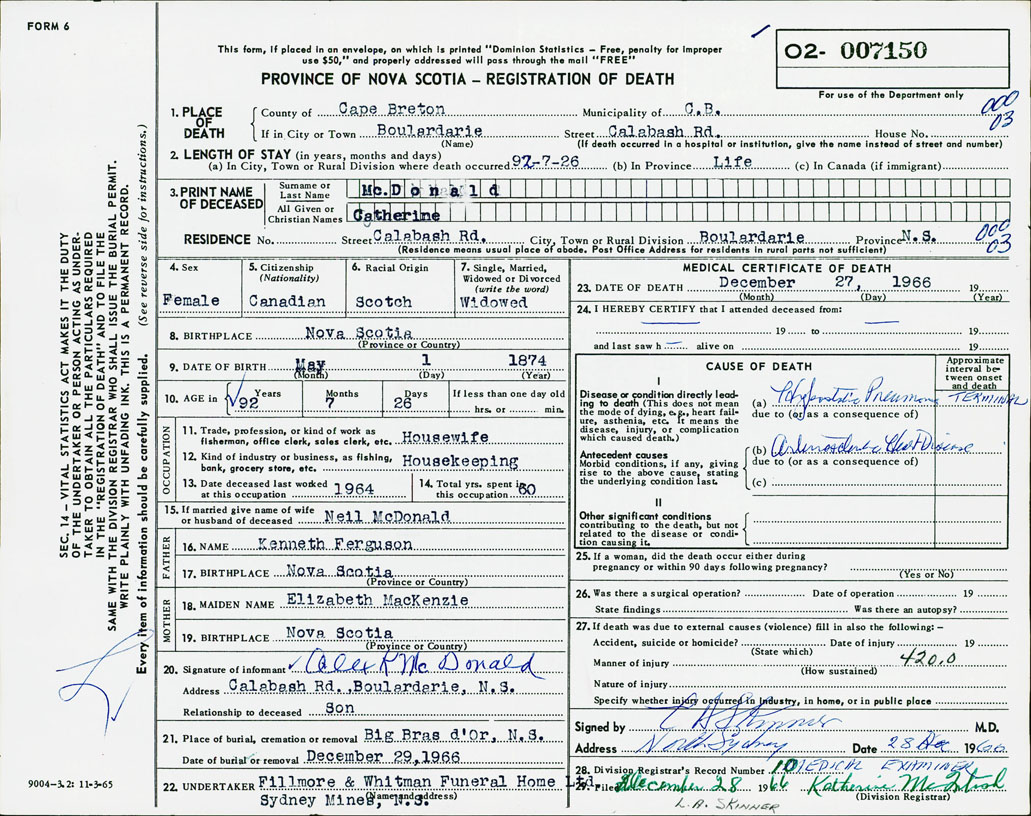 FORM 6
This form, if placed in an envelope, on which is printed "Dominion Statistics – Free, penalty for improper
use $50," and properly addressed will pass through the mail "FREE"
PROVINCE OF NOVA SCOTIA – REGISTRATION OF DEATH
02- 007150
For use of the Department only
1. PLACE OF DEATH
County of Cape Breton Municipality of C.B.
000
03
If in City or Town Boulardarie Street Calabash Rd. House No.
(Name) (If death occurred in a hospital or institution, give the name instead of street and number)
2. LENGTH OF STAY (in years, months and days)
(a) In City, Town or Rural Division where death occurred 92-7-26 (b) In Province Life (c) In Canada (if immigrant)
3. PRINT NAME OF DECEASED
Surname or Last Name McDonald
All Given or Christian Names Catherine
RESIDENCE No. Street Calabash Rd. City, Town or Rural Division Boulardarie Province N.S.
000
03
(Residence means usual place of abode. Post Office Address for residents in rural parts not sufficient)
4. Sex
Female
5. Citizenship
(Nationality)
Canadian
6. Racial Origin
Scotch
7. Single, Married,
Widowed or Divorced
(write the word)
Widowed
8. BIRTHPLACE Nova Scotia
(Province or Country)
9. DATE OF BIRTH May 1 1874
(Month) (Day) (Year)
10. AGE in Years Months Days If less than one day old
92 7 26 hrs. or min.
OCCUPATION
11. Trade, profession, or kind of work as
fisherman, office clerk, sales clerk, etc. Housewife
12. Kind of industry or business, as fishing,
bank, grocery store, etc. Housekeeping
13. Date deceased last worked
at this occupation 1964
14. Total yrs. spent in
this occupation 60
15. If married give name of wife
or husband of deceased Neil McDonald
FATHER
16. NAME Kenneth Ferguson
17. BIRTHPLACE Nova Scotia
(Province or Country)
MOTHER
18. MAIDEN NAME Elizabeth MacKenzie
19. BIRTHPLACE Nova Scotia
(Province or Country)
20. Signature of informant Alex K McDonald
Address Calabash Rd., Boulardarie, N.S.
Relationship to deceased Son
21. Place of burial, cremation or removal Big Bras d'Or, N.S.
Date of burial or removal December 29,1966
22. UNDERTAKER Fillmore & Whitman Funeral Home Ltd.
(Name and address)
Sydney Mines, N.S.
MEDICAL CERTIFICATE OF DEATH
23. DATE OF DEATH December 27, 1966 19
(Month) (Day) (Year)
24. I HEREBY CERTIFY that I attended deceased from:
19 to 19
and last saw h alive on 19
CAUSE OF DEATH
Approximate interval between onset and death
I
Disease or condition directly leading to death (This does not mean the mode of dying, e.g., heart failure, asthenia, etc. It means the disease, injury, or complication which caused death.)
(a) Hypostatic Pneumonia TERMINAL
due to (or as a consequence of)
Antecedent causes
Morbid conditions, if any, giving rise to the above cause, stating the underlying condition last.
(b) Arteriosclerotic Heart Disease
due to (or as a consequence of)
(c)
II
Other significant conditions
contributing to the death, but not related to the disease or condition causing it.
25. If a woman, did the death occur either during
pregnancy or within 90 days following pregnancy?
(Yes or No)
26. Was there a surgical operation? Date of operation 19
State findings Was there an autopsy?
27. If death was due to external causes (violence) fill in also the following: –
Accident, suicide or homicide? Date of injury 19
(State which)
Manner of injury 420.0
(How sustained)
Nature of injury
Specify whether injury occurred in Industry, in home, or in public place
Signed by L A Skinner M.D.
Address North Sydney Date 28 Dec 1966
MEDICAL EXAMINER
28. Division Registrar's Record Number 10
29. Filed December 28 1966 Katherine McIntosh
(Division Registrar)
L.A. SKINNER
SEC. 14 – VITAL STATISTICS ACT MAKES IT THE DUTY
OF THE UNDERTAKER OR PERSON ACTING AS UNDER-
TAKER TO OBTAIN ALL THE PARTICULARS REQUIRED
IN THE "REGISTRATION OF DEATH" AND TO FILE THE
SAME WITH THE DIVISION REGISTRAR WHO SHALL ISSUE THE BURIAL PERMIT.
WRITE PLAINLY WITH UNFADING INK. THIS IS A PERMANENT RECORD.
Every item of information should be carefully supplied. (See reverse side for instructions.)
9004-3.2: 11-3-65